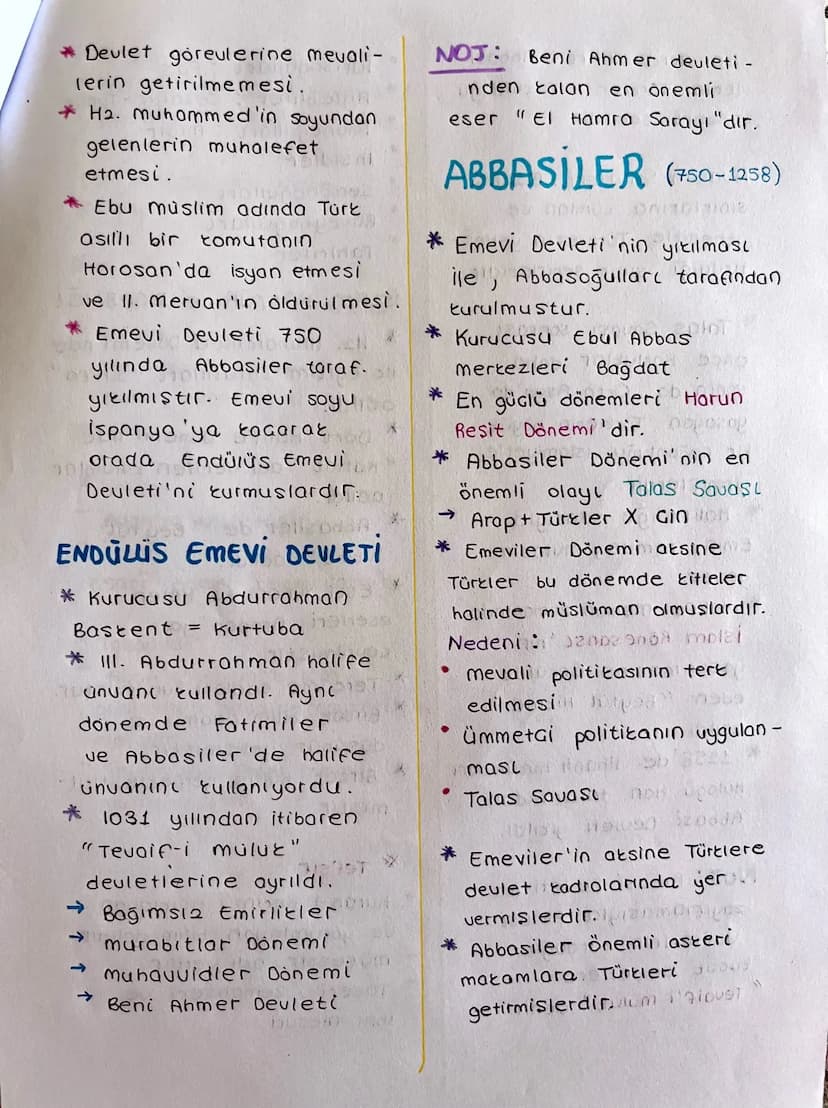 * Devlet görevlerine mevali-
lerin getirilmemesi.
* Hz. muhammed'in soyundan
gelenlerin muhalefet
etmesi.
* Ebu müslim adında Türk
asıllı bir komutanın
Horosan'da isyan etmesi
ve II. Mervan'ın öldürülmesi.
* Emevi Devleti 750
yılında Abbasiler taraf.
yıkılmıştır. Emevi soyu
İspanya'ya kaçarak
orada Endülüs Emevi
Devleti'ni kurmuslardır.
ENDÜLÜS EMEVİ DEVLETİ
* Kurucusu Abdurrahman
Baskent = Kurtuba
* III. Abdurrahman halife
ünvanı kullandı. Aynı
dönemde Fatimiler
ve Abbasiler'de halife
ünvanını kullanıyordu.
* 1031 yılından itibaren
"Tevaif-i mülük"
devletlerine ayrıldı.
→ Bağımsız Emirlikler
→ murabıtlar Dönemi
→ muhavvidler Dönemi
→ Beni Ahmer Devleti
NOT: Beni Ahmer devleti-
nden kalan en önemli
eser "El Hamra Sarayı"dır.
ABBASİLER (750-1258)
* Emevi Devleti'nin yıkılması
ile, Abbasoğulları tarafından
kurulmustur.
* Kurucusu Ebul Abbas
merkezleri Bağdat
* En güçlü dönemleri Harun
Resit Dönemi'dir.
* Abbasiler Dönemi'nin en
önemli olayı Talas Savası
→ Arap+Türkler X Çin
* Emeviler Dönemi aksine
Türkler bu dönemde kitleler
halinde müslüman olmuslardır.
Nedeni:
• mevali politikasının terk
edilmesi
• ümmetçi politikanın uygulan-
ması
• Talas Savası
* Emeviler'in aksine Türklere
devlet kadrolarında yer
vermislerdir.
* Abbasiler önemli askeri
makamlara Türkleri
getirmislerdir.